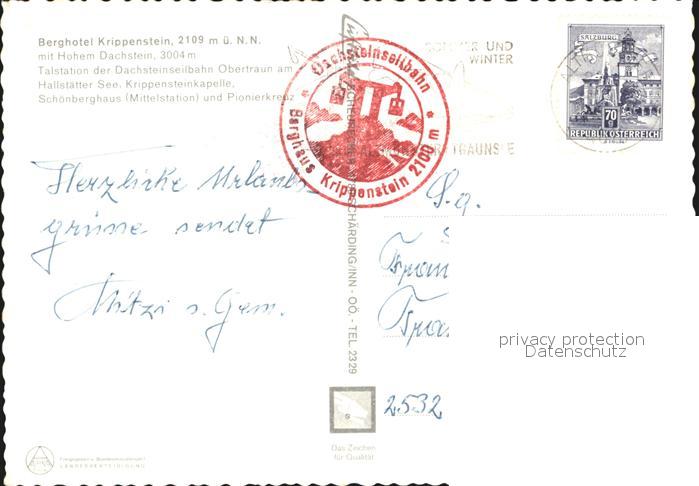 Berghotel Krippenstein, 2109 m ü. N. N.
mit Hohem Dachstein, 3004 m
Talstation der Dachsteinseilbahn Obertraun am
Hallstätter See, Krippensteinkapelle,
Schönberghaus (Mittelstation) und Pionierkreuz
Dachsteinseilbahn
Berghaus Krippenstein 2100 m
SOMMER UND
WINTER
SALZBURG
70
REPUBLIK ÖSTERREICH
Herzliche Urlaubs
grüsse sendet
Mitzi u. Gem.
SCHÄRDING/INN - OÖ. - TEL. 2329
S.g.
2532
privacy protection
Datenschutz
S
Das Zeichen
für Qualität
LANDESVERTEIDIGUNG